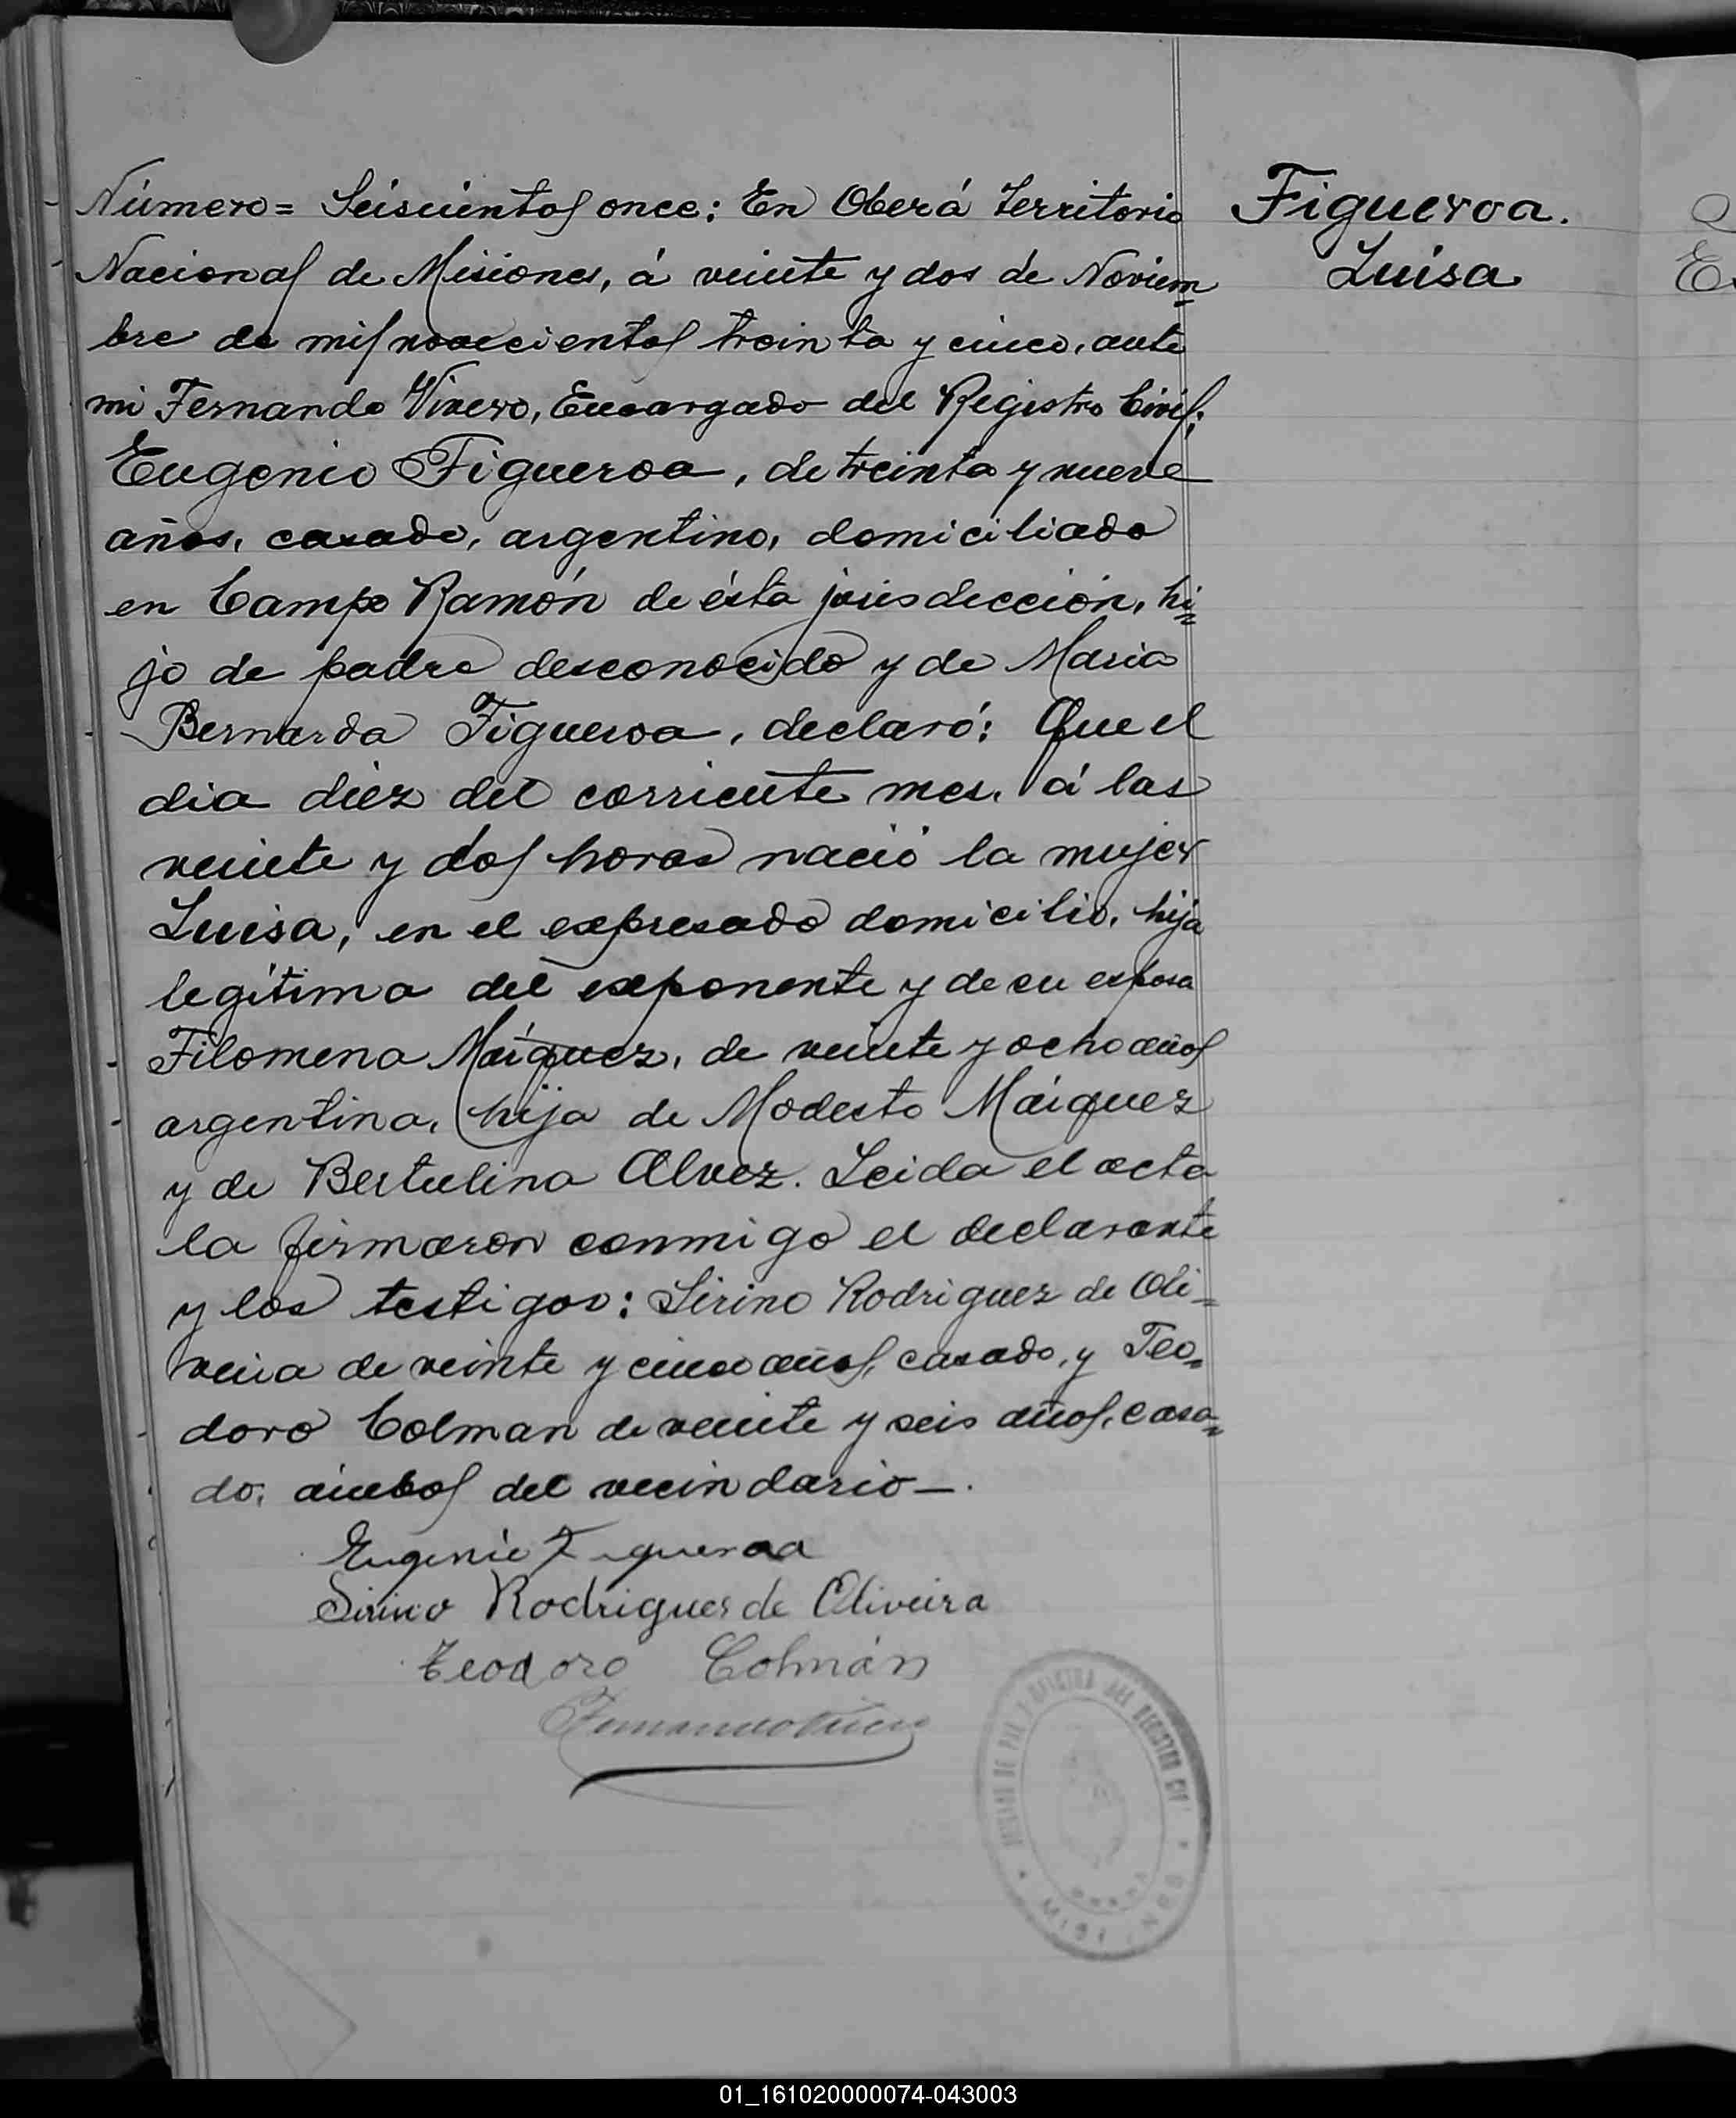 Número= Seiscientos once: En Oberá Territorio
Nacional de Misiones, á veinte y dos de Noviem=
bre de mil novecientos treinta y cinco, ante
mi Fernando Vivero, Encargado del Registro Civil;
Eugenio Figueroa, de treinta y nueve
años, casado, argentino, domiciliado
en Campo Ramón de ésta jurisdicción, hi=
jo de padre desconocido y de Maria
Bernarda Figueroa, declaró: Que el
dia diez del corriente mes, á las
veinte y dos horas nació la mujer
Luisa, en el expresado domicilio, hija
legítima del exponente y de su esposa
Filomena Márquez, de veinte y ocho años
argentina, hija de Modesto Márquez
y de Bertulina Alvez. Leida el acta
la firmaron conmigo el declarante
y los testigos: Sirino Rodriguez de Oli=
veira de veinte y cinco años, casado, y Teo=
doro Colman de veinte y seis años, casa=
do, ámbos del vecindario—.
Figueroa.
Luisa
Eugenio Figueroa
Sirino Rodrigues de Oliveira
Teodoro Colmán
Fernando Vivero
JUZGADO DE PAZ Y OFICINA DEL REGISTRO CIVIL
OBERA
MISIONES
01_161020000074-043003